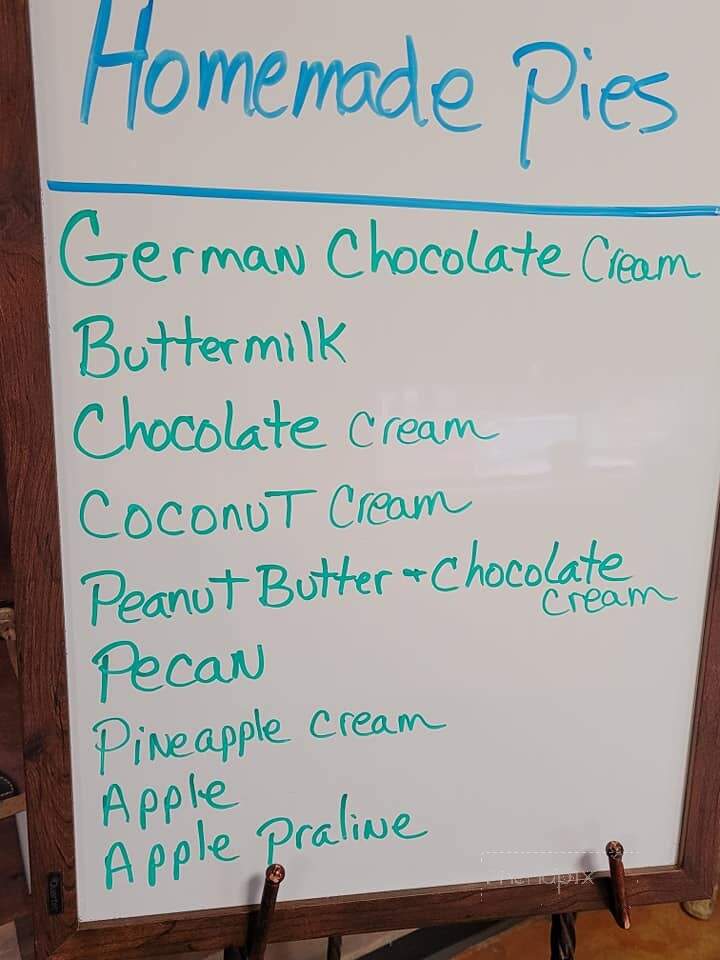 Homemade Pies
German Chocolate Cream
Buttermilk
Chocolate Cream
Coconut Cream
Peanut Butter + Chocolate
cream
Pecan
Pineapple cream
Apple
Apple Praline
menupix